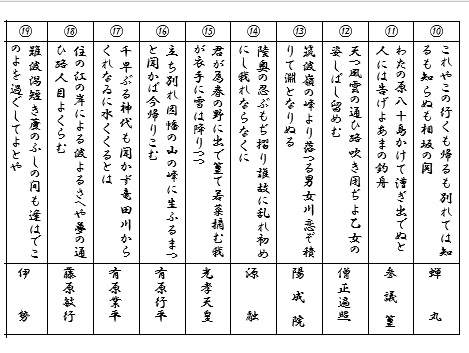 ⑩
これやこの行くも帰るも別れては知
るも知らぬも相坂の関
蝉丸
⑪
わたの原八十島かけて漕ぎ出でぬと
人には告げよあまの釣舟
参議篁
⑫
天つ風雲の通ひ路吹き閉ぢよ乙女の
姿しばし留めむ
僧正遍照
⑬
筑波嶺の峰より落つる男女川恋ぞ積
りて淵となりぬる
陽成院
⑭
陸奥の忍ぶもぢ摺り誰故に乱れ初め
にし我れならなくに
源融
⑮
君が為春の野に出で篁て若菜摘む我
が衣手に雪は降りつつ
光孝天皇
⑯
立ち別れ因幡の山の峰に生ふるまつ
と聞かば今帰りこむ
有原行平
⑰
千早ぶる神代も聞かず竜田川から
くれなゐに水くくるとは
有原業平
⑱
住の江の岸による波よるさへや夢の通
ひ路人目よくらむ
藤原敏行
⑲
難波潟短き蘆のふしの間も逢はでこ
のよを過ぐしてよとや
伊勢